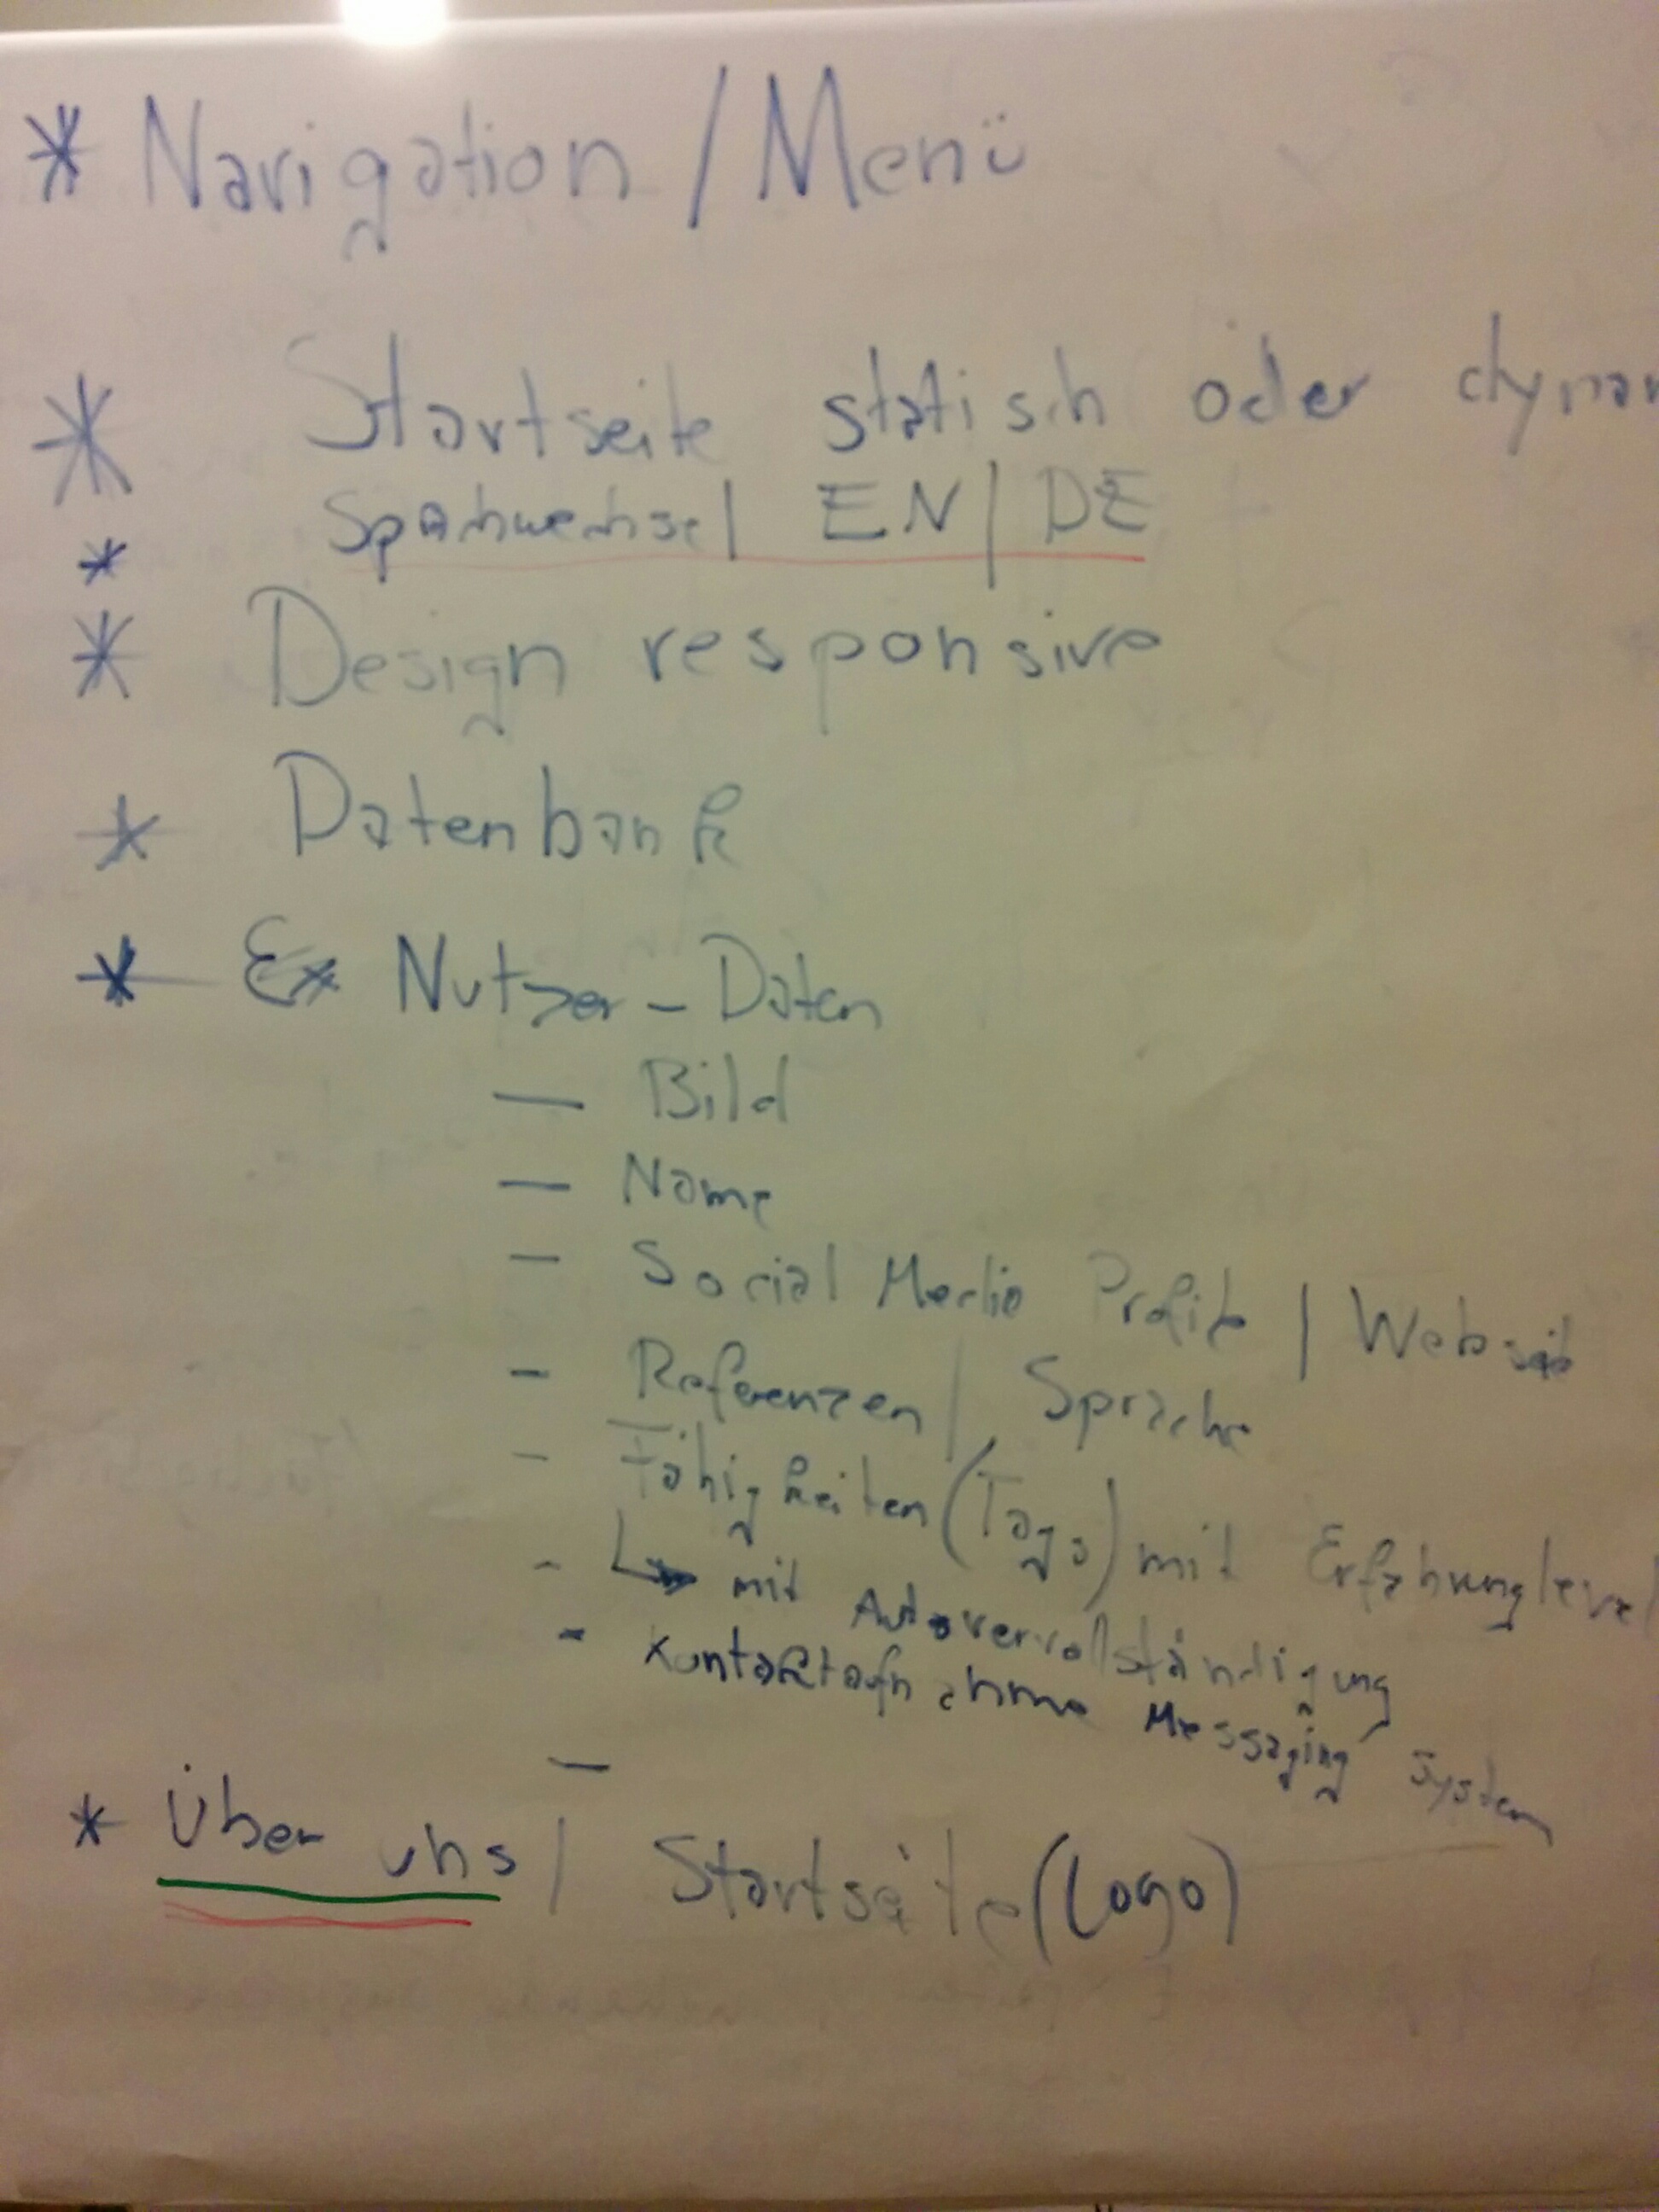 * Navigation / Menü
* Startseite statisch oder dynam
* Sprachwechsel EN | DE
* Design responsive
* Datenbank
* Ex Nutzer - Daten
— Bild
— Name
- Social Media Profile | Webseite
- Referenzen | Sprache
- Fähigkeiten (Tags) mit Erfahrunglevel
- ↳ mit Autovervollständigung
- Kontaktaufnahme Messaging System
—
* Über uns | Startseite (Logo)